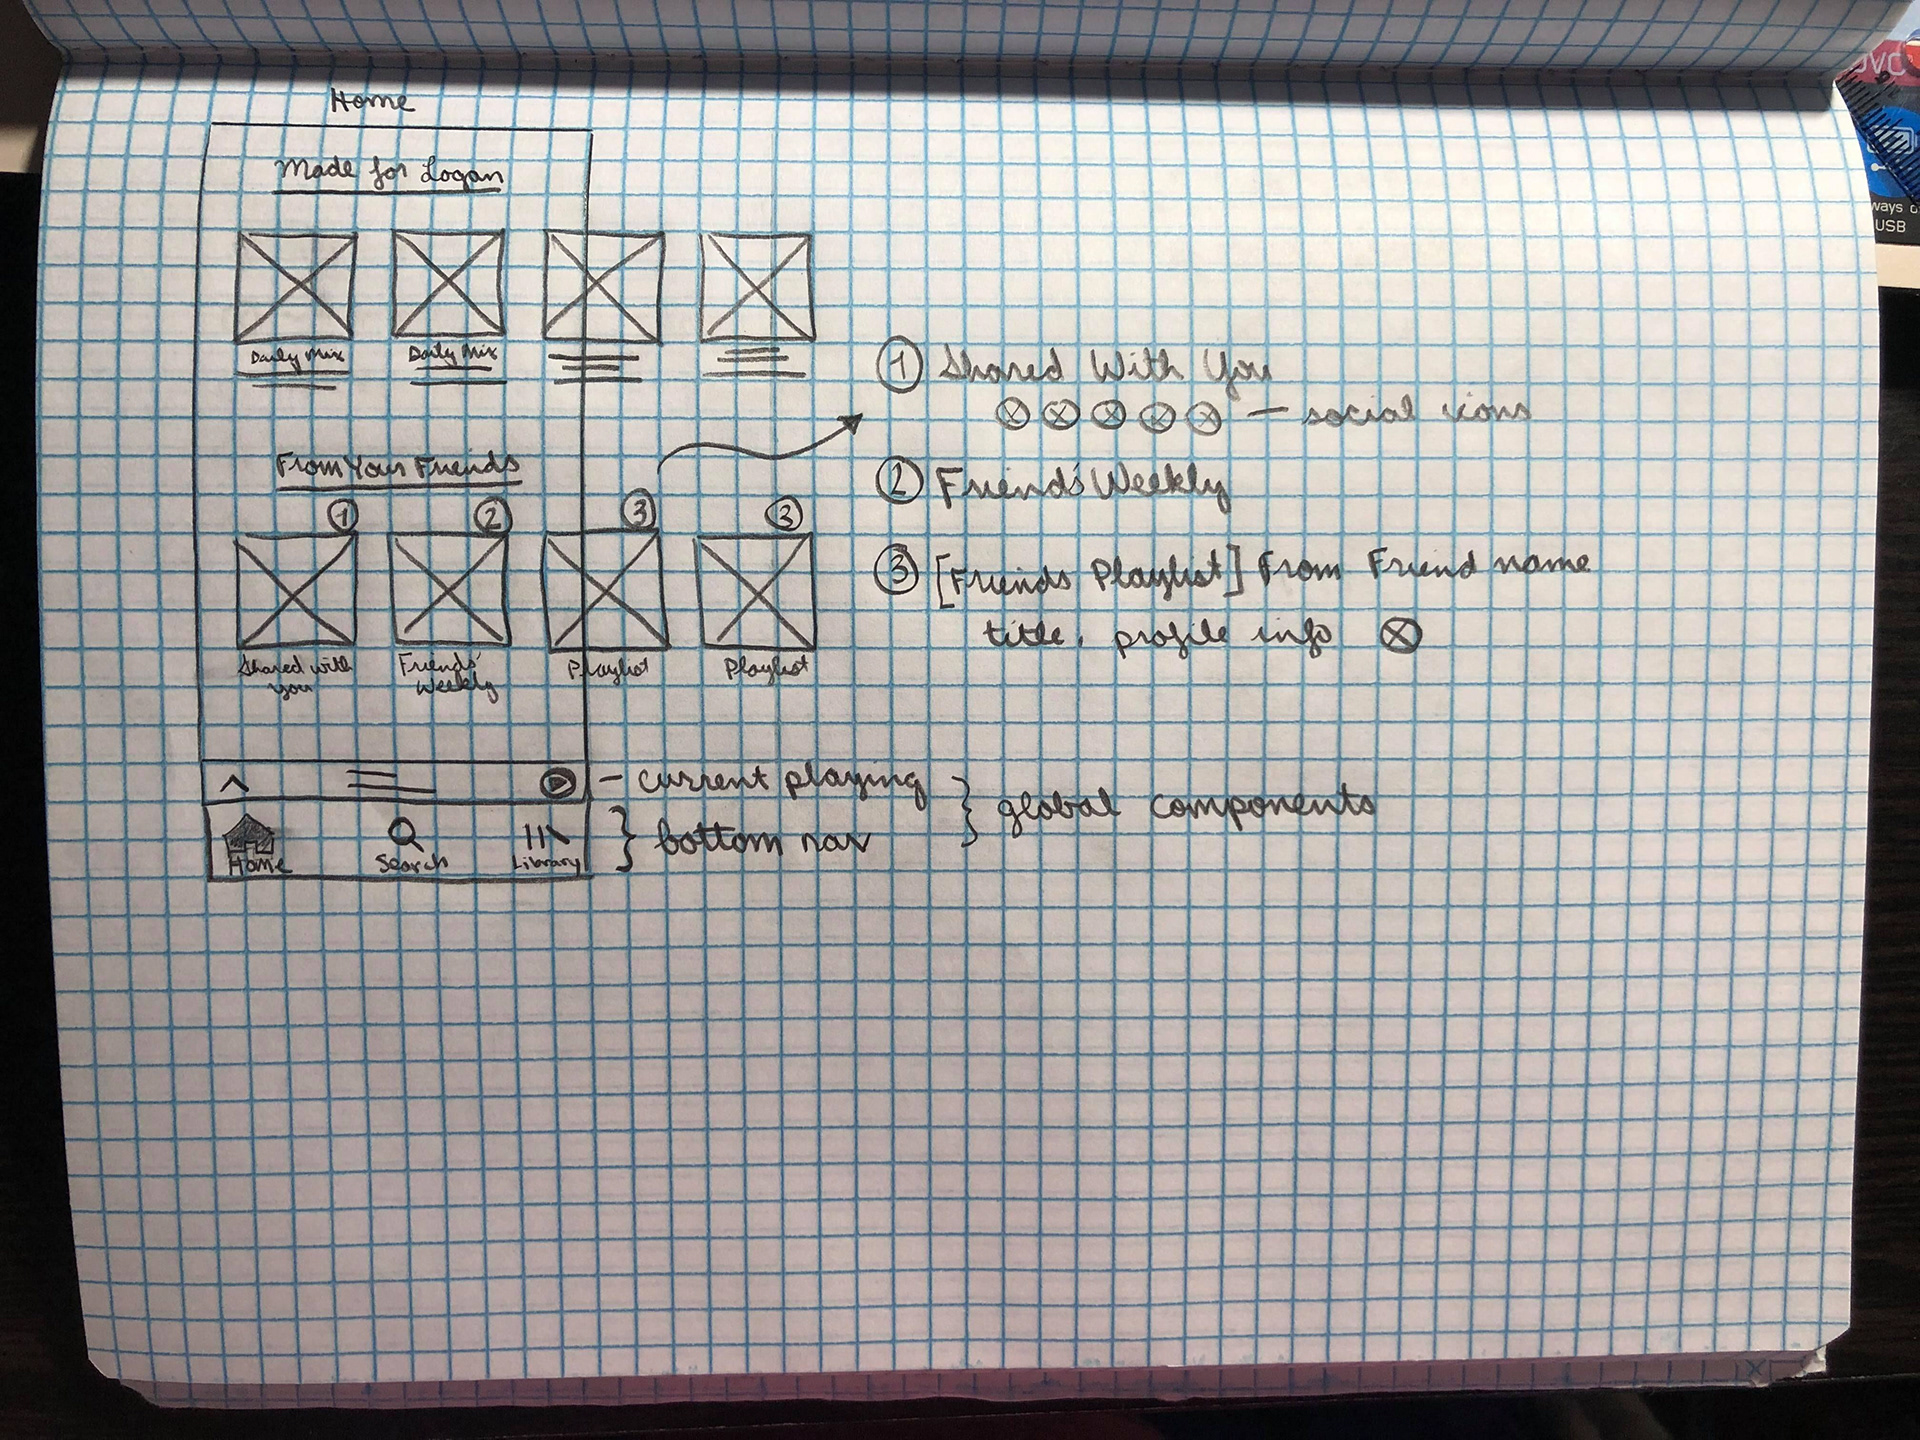 Home
Made for Logan
Daily Mix
Daily Mix
From Your Friends
1
2
3
3
Shared with
you
Friends'
Weekly
Playlist
Playlist
1 Shared With You
— social icons
2 Friends' Weekly
3 [Friends Playlist] From Friend name
title, profile info
- current playing
} global components
Home
Search
Library
} bottom nav
ways o
USB